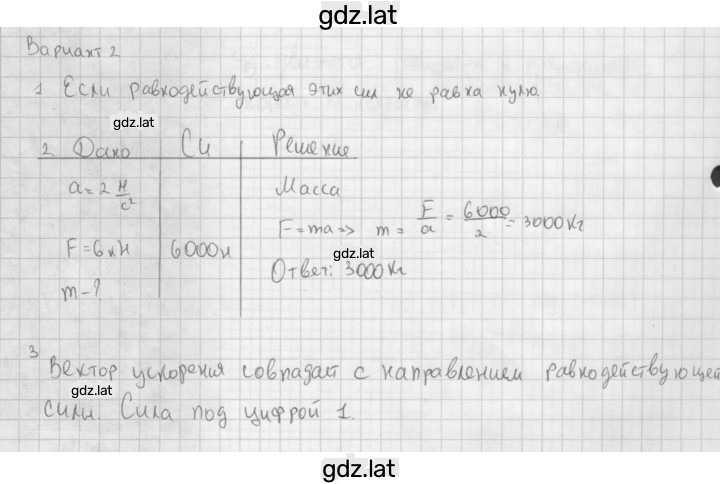 gdz.lat
Вариант 2
1 Если равнодействующая этих сил не равна нулю.
gdz.lat
2. Дано Си Решение
a = 2 Н/с² Масса
F = ma => m = F/a = 6000/2 = 3000 кг
F = 6 кН 6000 н gdz.lat
Ответ: 3000 кг
m - ?
3 Вектор ускорения совпадает с направлением равнодействующей
gdz.lat
силы. Сила под цифрой 1.
gdz.lat